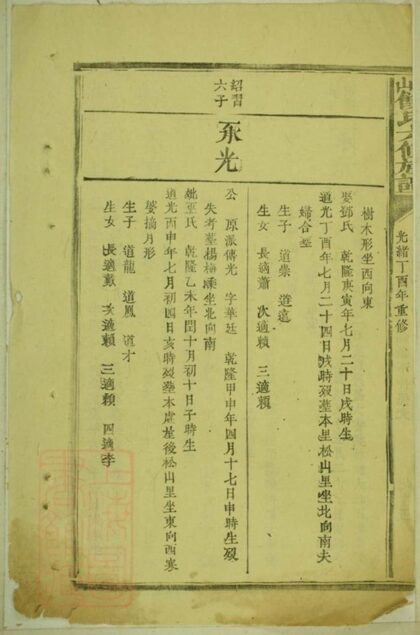 光緒丁酉年重修
樹木形坐西向東
娶鄧氏 乾隆庚寅年七月二十日戌時生
道光丁酉年七月二十四日戌時歿墓本里松山里坐北向南夫
婦合塋
生子 道崇 道遠
生女 長適蕭 次適賴 三適賴
紹習
六子
永光
公 原派傳光 字華廷 乾隆甲申年四月十七日申時生歿
失考墓楊梅坐北向南
妣巫氏 乾隆乙未年閏十月初十日子時生
道光丙申年七月初四日亥時歿塋本處屋後松山里坐東向西寒
婆搗月形
生子 道龍 道鳳 道才
生女 長適戴 次適賴 三適賴 四適李